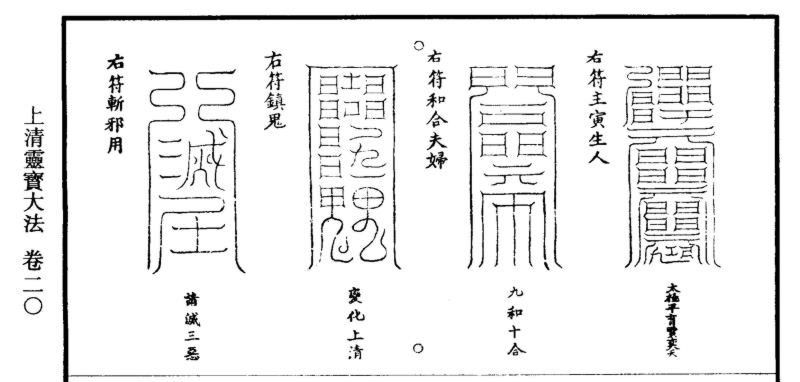 右符主寅生人
太極平育賢奕天
右符和合夫婦
九和十合
右符鎮鬼
變化上清
右符斬邪用
請滅三惡
上清靈寶大法 卷二〇